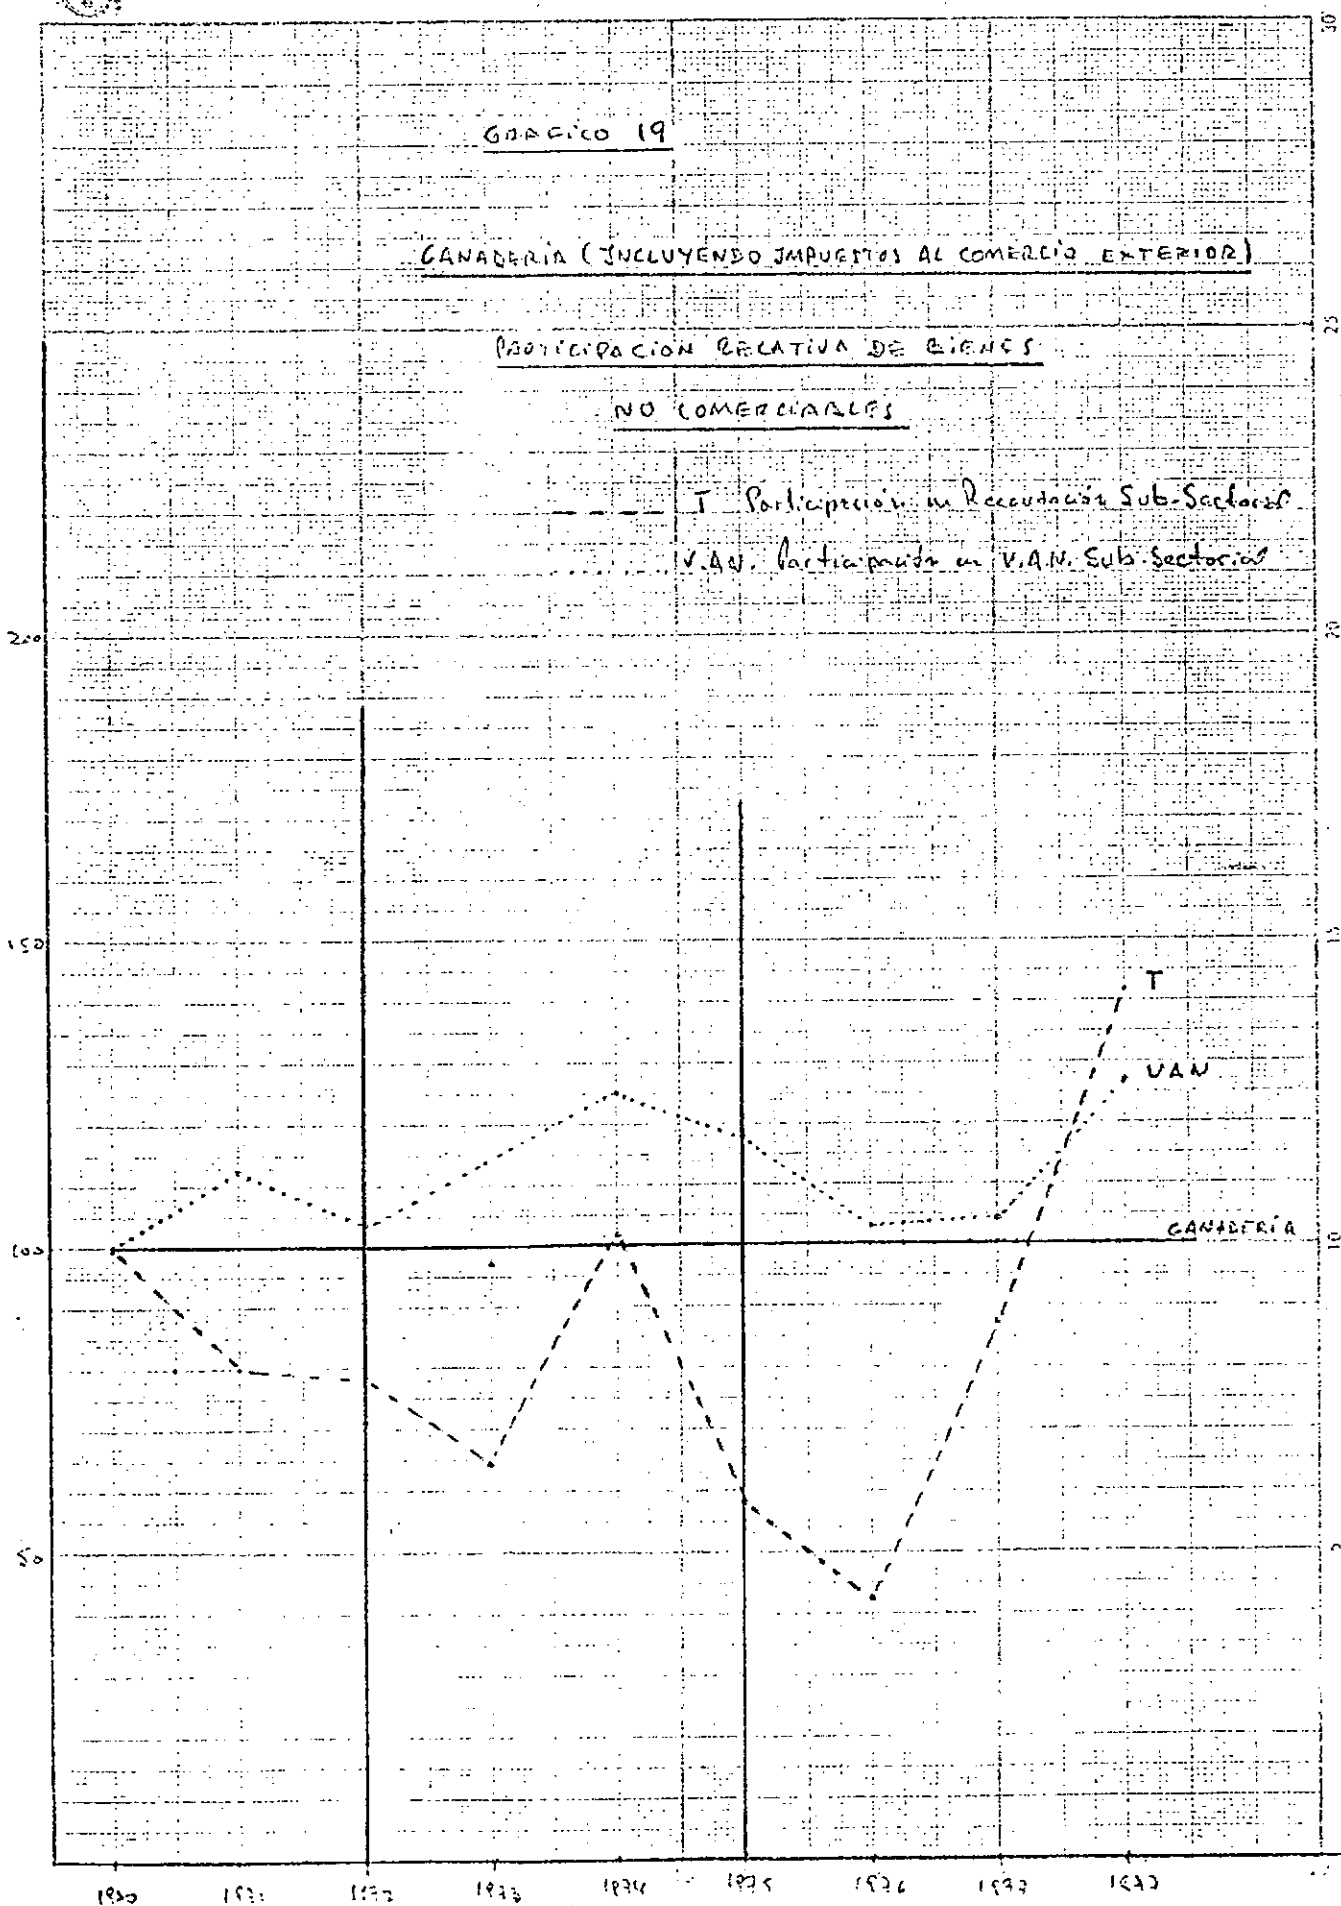 GRAFICO 19
GANADERIA (INCLUYENDO IMPUESTOS AL COMERCIO EXTERIOR)
PARTICIPACION RELATIVA DE BIENES
NO COMERCIABLES
T Participación en Recaudación Sub-Sectorial
V.A.N. Participación en V.A.N. Sub-Sectorial
30
25
200
20
150
15
T
VAN
GANADERÍA
100
10
50
5
1970 1971 1972 1973 1974 1975 1976 1977